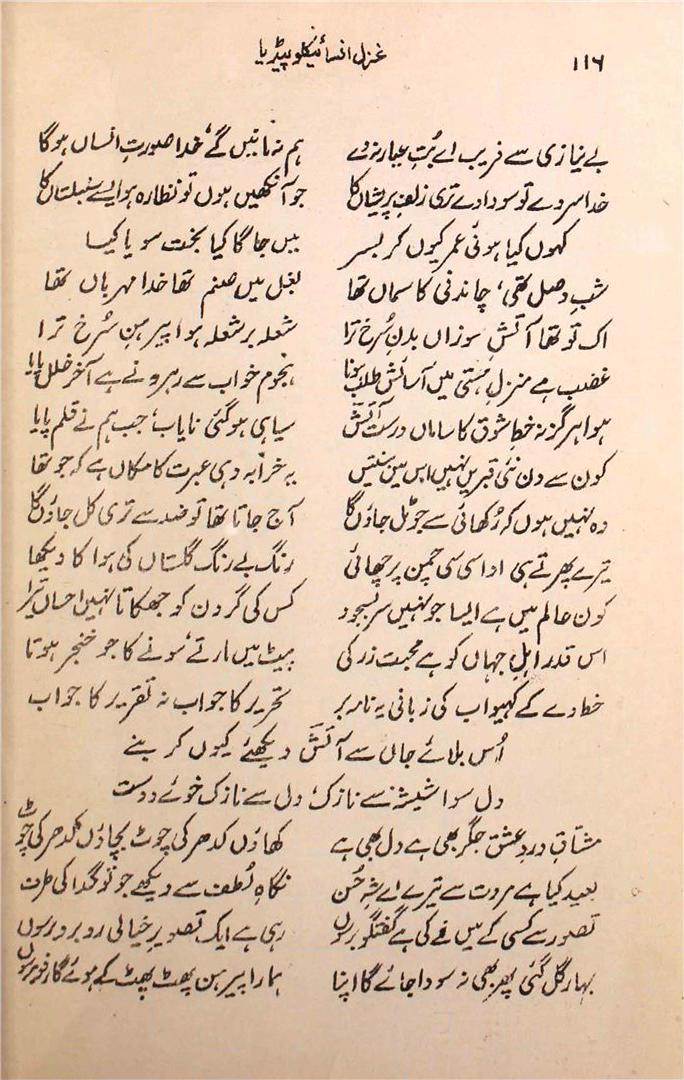 ۱۱۶ غزل انسائیکلوپیڈیا
بے نیازی سے فریب اے بُتِ عیار نہ دے ہم نہ مانیں گے، خدا صورتِ انساں ہوگا
خدا سر دے تو سودا دے تری زلفِ پریشاں کا جو آنکھیں ہوں تو نظارہ ہو ایسے سنبلستاں کا
کہوں کیا ہوئی عمر کیوں کر بسر میں جاگا کیا بخت سویا کیا
شبِ وصل تھی، چاندنی کا سماں تھا بغل میں صنم تھا خدا مہرباں تھا
اک تو تھا آتشِ سوزاں بدنِ سُرخ ترا شعلہ بر شعلہ ہوا پیرہنِ سُرخ ترا
غضب ہے منزلِ ہستی میں آسائش طلب ہونا ہجومِ خواب سے رہرو نے ہے آخر خلل پایا
ہوا ہرگز نہ خطِ شوق کا ساماں درست آتشؔ سیاہی ہوگئی نایاب، جب ہم نے قلم پایا
کون سے دن نئی قبریں نہیں اس میں بنتیں یہ خرابہ وہی عبرت کا مکاں ہے کہ جو تھا
وہ نہیں ہوں کہ رُکھائی سے جو ٹل جاؤں گا آج جاتا تھا تو ضد سے تری کل جاؤں گا
تیرے پھرتے ہی اداسی سی چمن پر چھائی رنگ بے رنگ گلستاں کی ہوا کا دیکھا
کون عالم میں ہے ایسا جو نہیں سر بسجود کس کی گردن کو جھکاتا نہیں احساں تیرا
اس قدر اہلِ جہاں کو ہے محبت زر کی پیٹ میں مارتے، سونے کا جو خنجر ہوتا
خط دے کے کہیو اب کی زبانی یہ نامہ بر تحریر کا جواب نہ تقریر کا جواب
اُس بلائے جاں سے آتشؔ دیکھئے کیوں کر بنے
دل سوا شیشہ سے نازک، دل سے نازک خوئے دوست
مشتاق دردِ عشق جگر بھی ہے دل بھی ہے کھاؤں کدھر کی چوٹ بچاؤں کدھر کی چوٹ
بعید کیا ہے مروت سے تیرے اے شہِ حُسن نگاہِ لُطف سے دیکھے جو تو گدا کی طرف
تصور سے کسی کے میں نے کی ہے گفتگو برسوں رہی ہے ایک تصویرِ خیالی روبرو برسوں
بہارِ گل گئی پھر بھی نہ سودا جائے گا اپنا ہمارا پیرہن پھٹ پھٹ کے ہوئے گا رفو برسوں